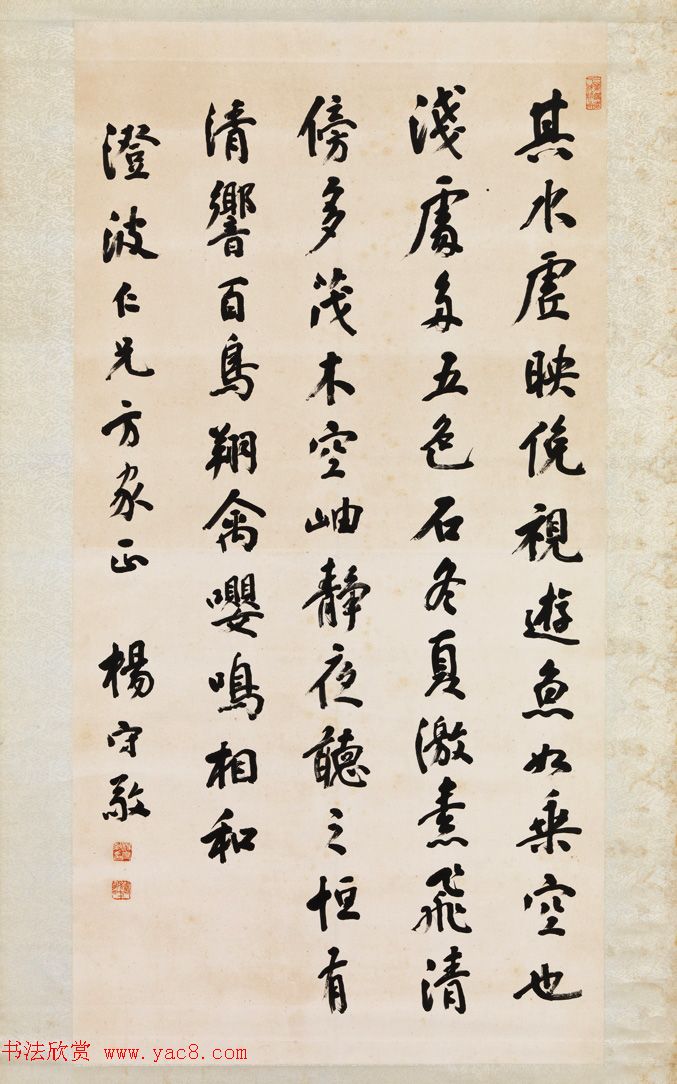 其水虛映俛視遊魚如乘空也
淺處多五色石冬夏激素飛清
傍多茂木空岫靜夜聽之恒有
清響百鳥翔禽嚶鳴相和
澄波仁兄方家正 楊守敬
书法欣赏 www.yac8.com